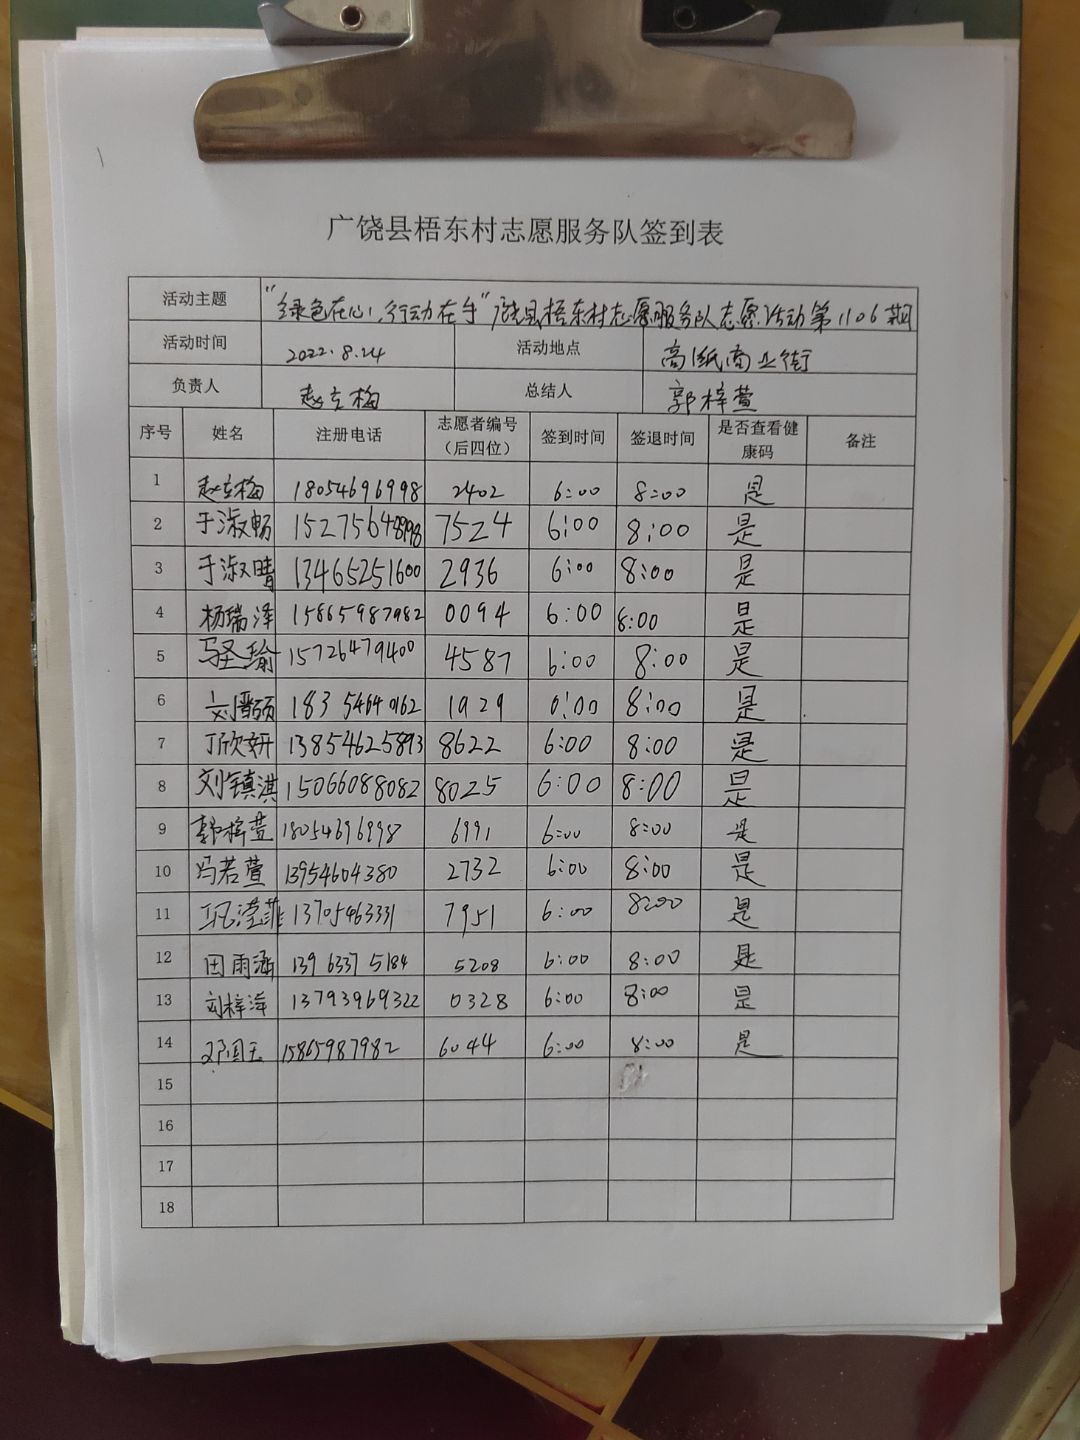 广饶县梧东村志愿服务队签到表
活动主题 "绿色在心,行动在手"广饶县梧东村志愿服务队志愿活动第1106期
活动时间 2022.8.24 活动地点 高级商业街
负责人 赵立梅 总结人 郭梓萱
序号 姓名 注册电话 志愿者编号（后四位） 签到时间 签退时间 是否查看健康码 备注
1 赵立梅 18054696998 2402 6:00 8:00 是
2 于淑畅 15275648898 7524 6:00 8:00 是
3 于淑晴 13465251600 2936 6:00 8:00 是
4 杨瑞泽 15865987982 0094 6:00 8:00 是
5 瑜 15726479400 4587 6:00 8:00 是
6 刘 18354640162 1929 6:00 8:00 是
7 丁欣妍 13854625893 8622 6:00 8:00 是
8 刘镇淇 15066088082 8025 6:00 8:00 是
9 郭梓萱 18054696998 6991 6:00 8:00 是
10 冯若萱 13954604380 2732 6:00 8:00 是
11 巩滢菲 13705463331 7951 6:00 8:00 是
12 田雨涵 13963375184 5208 6:00 8:00 是
13 刘梓泽 13793969322 0328 6:00 8:00 是
14 15865987982 6044 6:00 8:00 是
15
16
17
18